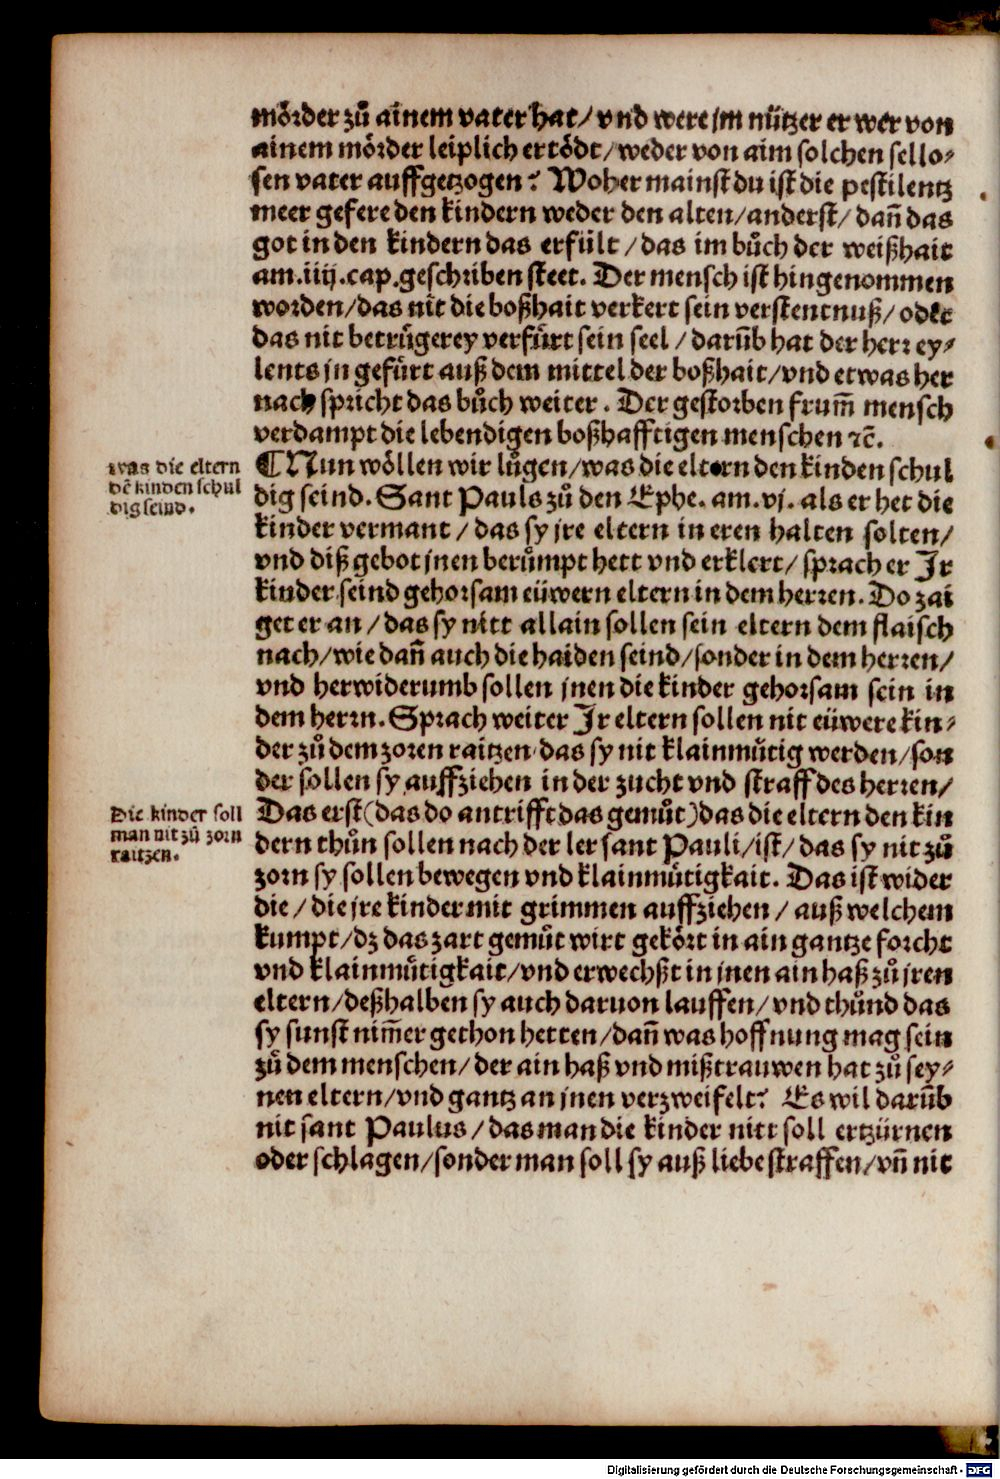 mörder zů ainem vater hat/ vnd were jm nützer er wer von
ainem mörder leiplich ertödt/ weder von aim solchen sello⸗
sen vater auffgetzogen? Woher mainst du ist die pestilentz
meer gefere den kindern weder den alten/ anderst/ dañ das
got in den kindern das erfült/ das im bůch der weißhait
am.iiij.cap.geschriben steet. Der mensch ist hingenommen
worden/ das nit die boßhait verkert sein verstentnuß/ oder
das nit betrügerey verfürt sein seel/ darūb hat der herr ey⸗
lents jn gefürt auß dem mittel der boßhait/ vnd etwas her
nach spricht das bůch weiter. Der gestorben frum̄ mensch
verdampt die lebendigen boßhafftigen menschen ⁊c̄.
was die eltern
dē kinden schul
dig seind.
¶ Nun wöllen wir lůgen/ was die eltern den kinden schul
dig seind. Sant Pauls zů den Ephe. am.vj. als er het die
kinder vermant/ das sy jre eltern in eren halten solten/
vnd diß gebot jnen berůmpt hett vnd erklert/ sprach er Jr
kinder seind gehorsam eüwern eltern in dem herren. Do zai
get er an/ das sy nitt allain sollen sein eltern dem flaisch
nach/ wie dañ auch die haiden seind/ sonder in dem herren/
vnd herwiderumb sollen jnen die kinder gehorsam sein in
dem herrn. Sprach weiter Jr eltern sollen nit eüwere kin⸗
der zů dem zoren raitzen das sy nit klainmütig werden/ son
der sollen sy auffziehen in der zucht vnd straff des herren/
Die kinder soll
man nit zů zorn
raitzen.
Das erst (das do antrifft das gemüt) das die eltern den kin
dern thůn sollen nach der ler sant Pauli/ ist/ das sy nit zů
zorn sy sollen bewegen vnd klainmütigkait. Das ist wider
die/ die jre kinder mit grimmen auffziehen/ auß welchem
kumpt/ dz das zart gemüt wirt gekört in ain gantze forcht
vnd klainmütigkait/ vnd erwechßt in jnen ain haß zů jren
eltern/ deßhalben sy auch daruon lauffen/ vnd thůnd das
sy sunst nim̄er gethon hetten/ dañ was hoffnung mag sein
zů dem menschen/ der ain haß vnd mißtrauwen hat zů sey⸗
nen eltern/ vnd gantz an jnen verzweifelt? Es wil darūb
nit sant Paulus/ das man die kinder nitt soll ertzürnen
oder schlagen/ sonder man soll sy auß liebe straffen/ vñ nit
Digitalisierung gefördert durch die Deutsche Forschungsgemeinschaft - DFG